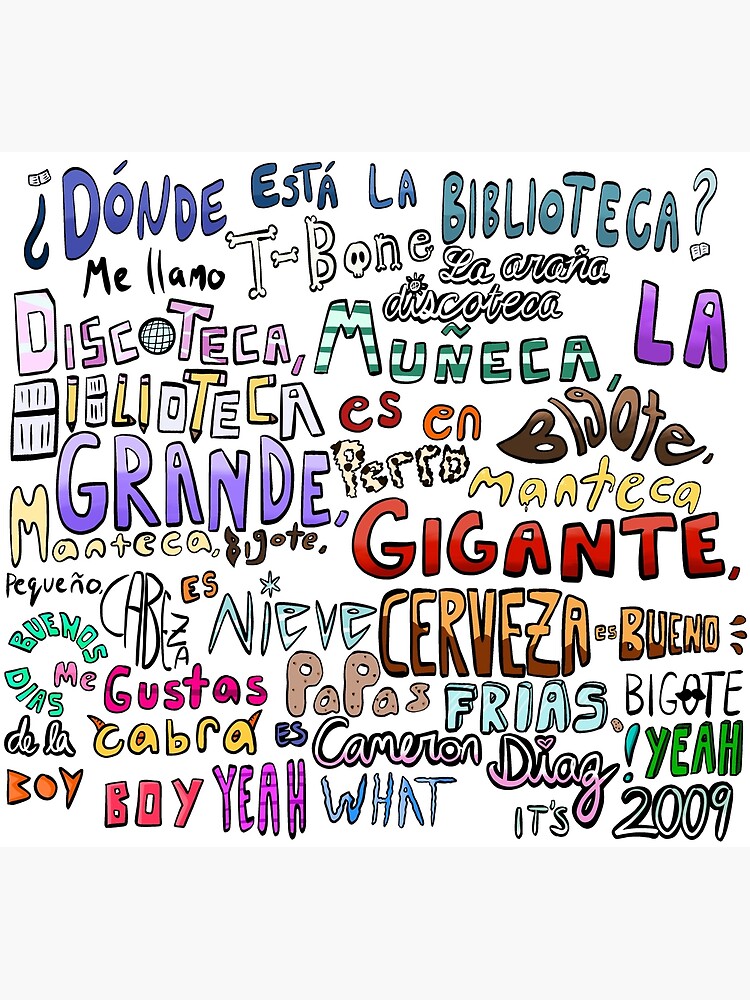 ¿DÓNDE ESTÁ LA BIBLIOTECA?
Me llamo T-Bone La araña
discoteca
DISCOTECA, MUÑECA, LA
BIBLIOTECA es en BIGOTE,
GRANDE, Perro manteca
Manteca, Bigote, GIGANTE,
Pequeño, CABEZA ES NIEVE CERVEZA es BUENO
BUENOS DIAS Me GUSTAS PAPAS FRÍAS BIGOTE
de la cabra ES Cameron Diaz! YEAH
BOY BOY YEAH WHAT IT'S 2009